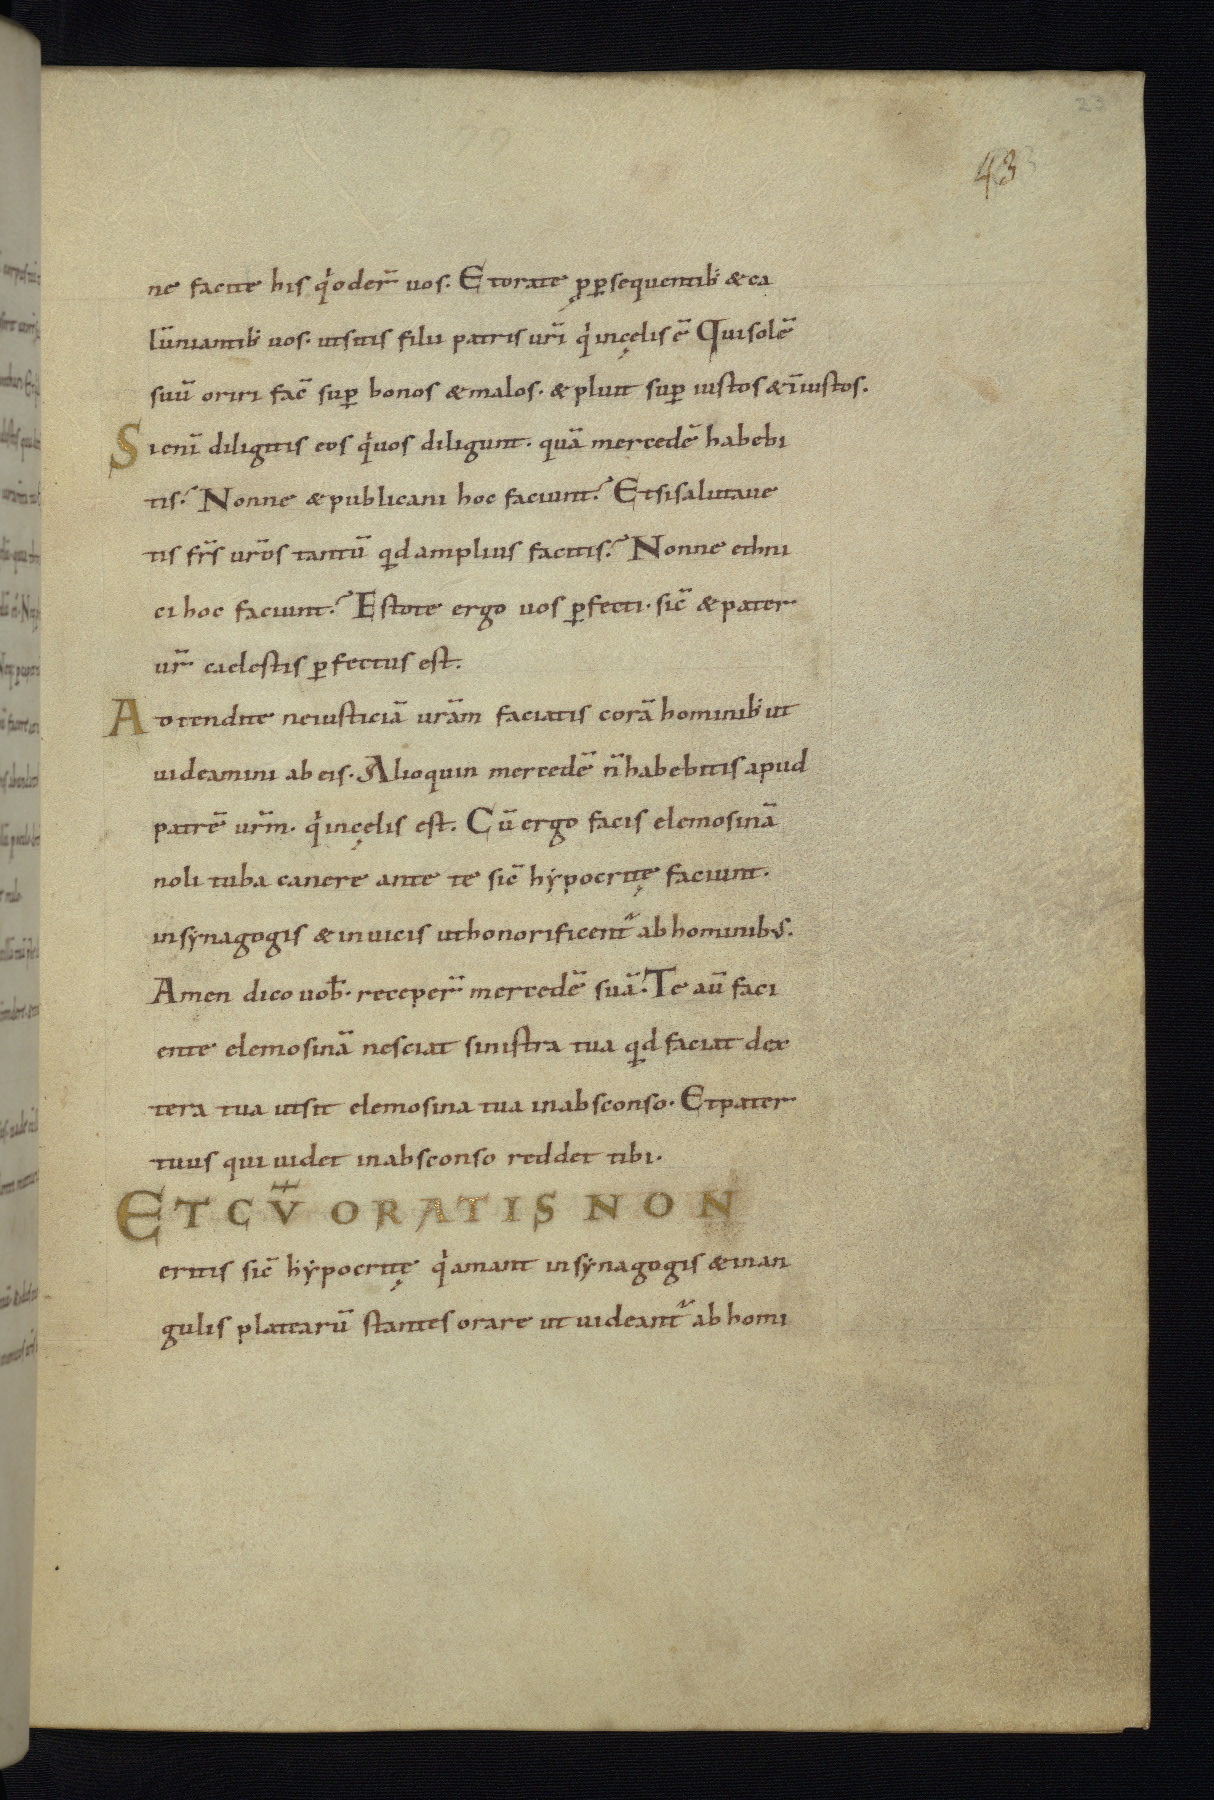 23
43
ne facite his q̇ oder̄ vos. Et orate ꝓ ꝑsequentib; & ca
lūniantib; vos. ut sitis filii patris ur̄i q̇ in cęlis ē Qui solē
suū oriri fac̄ sup̱ bonos & malos. & pluit sup̱ iustos & īiustos.
Si eni̅ diligitis eos q̇ vos diligunt. quā mercedē habebi
tis? Nonne & publicani hoc faciunt? Et si salutaue
tis fr̄s ur̄os tantū qd amplius facitis? Nonne ethni
ci hoc faciunt? Estote ergo vos ꝑfecti. sic̄ & pater
ur̄ caelestis ꝑfectus est.
Attendite ne iusticiā ur̄am faciatis corā hominib; ut
videamini ab eis. Alioquin mercedē n̄ habebitis apud
patrē ur̄m. q̇ in cęlis est. Cū ergo facis elemosinā
noli tuba canere ante te sic̄ hẏpocritę faciunt.
in sẏnagogis & in vicis ut honorificent᷑ ab hominibus.
Amen dico vob̄. receper̄ mercedē suā. Te aū faci
ente elemosinā nesciat sinistra tua qd faciat dex
tera tua ut sit elemosina tua in absconso. Et pater
tuus qui videt in absconso reddet tibi.
ET CV̄ ORATIS NON
eritis sic̄ hẏpocritę q̇ amant in sẏnagogis & in an
gulis platearū stantes orare ut videant᷑ ab homi